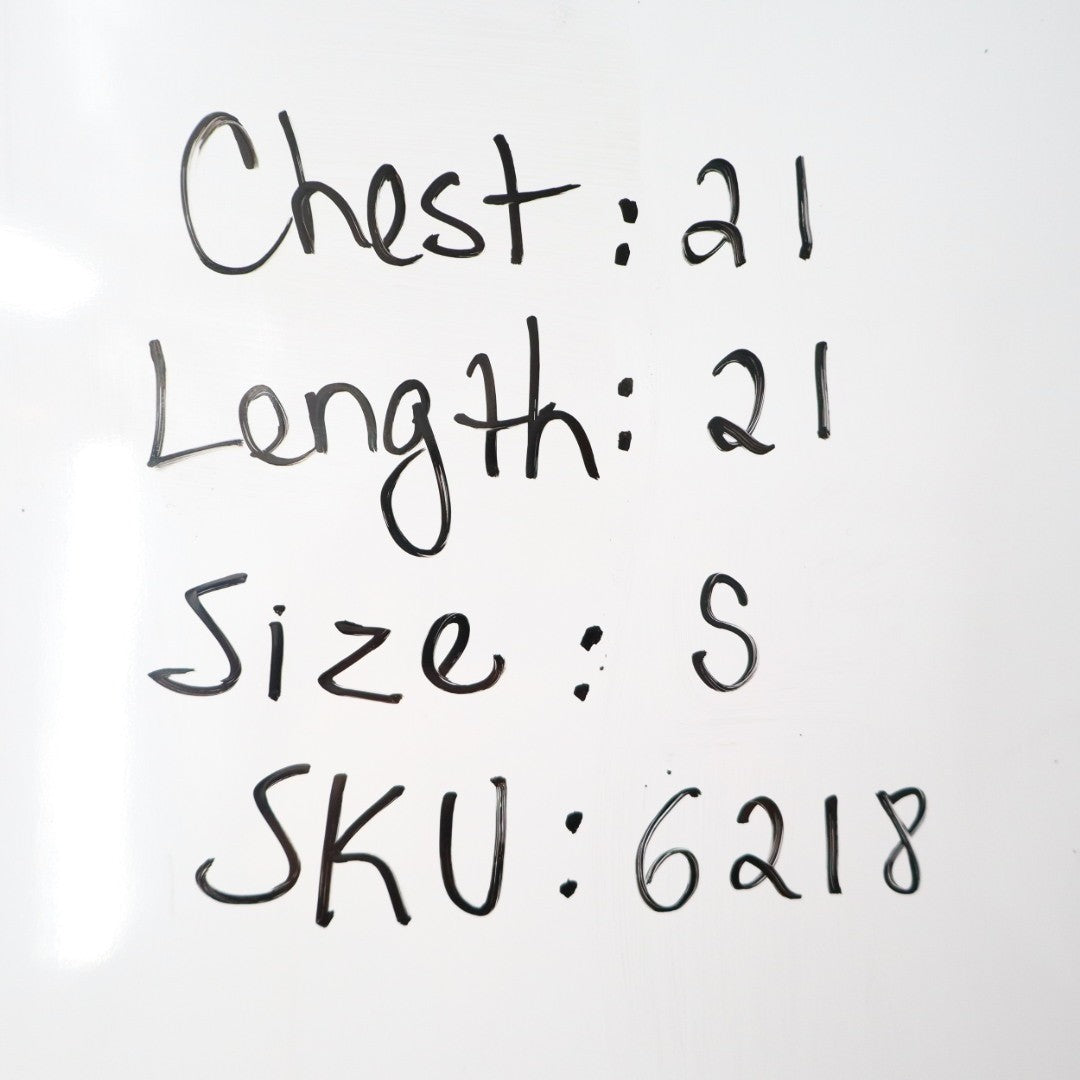 Chest: 21
Length: 21
Size: S
SKU: 6218